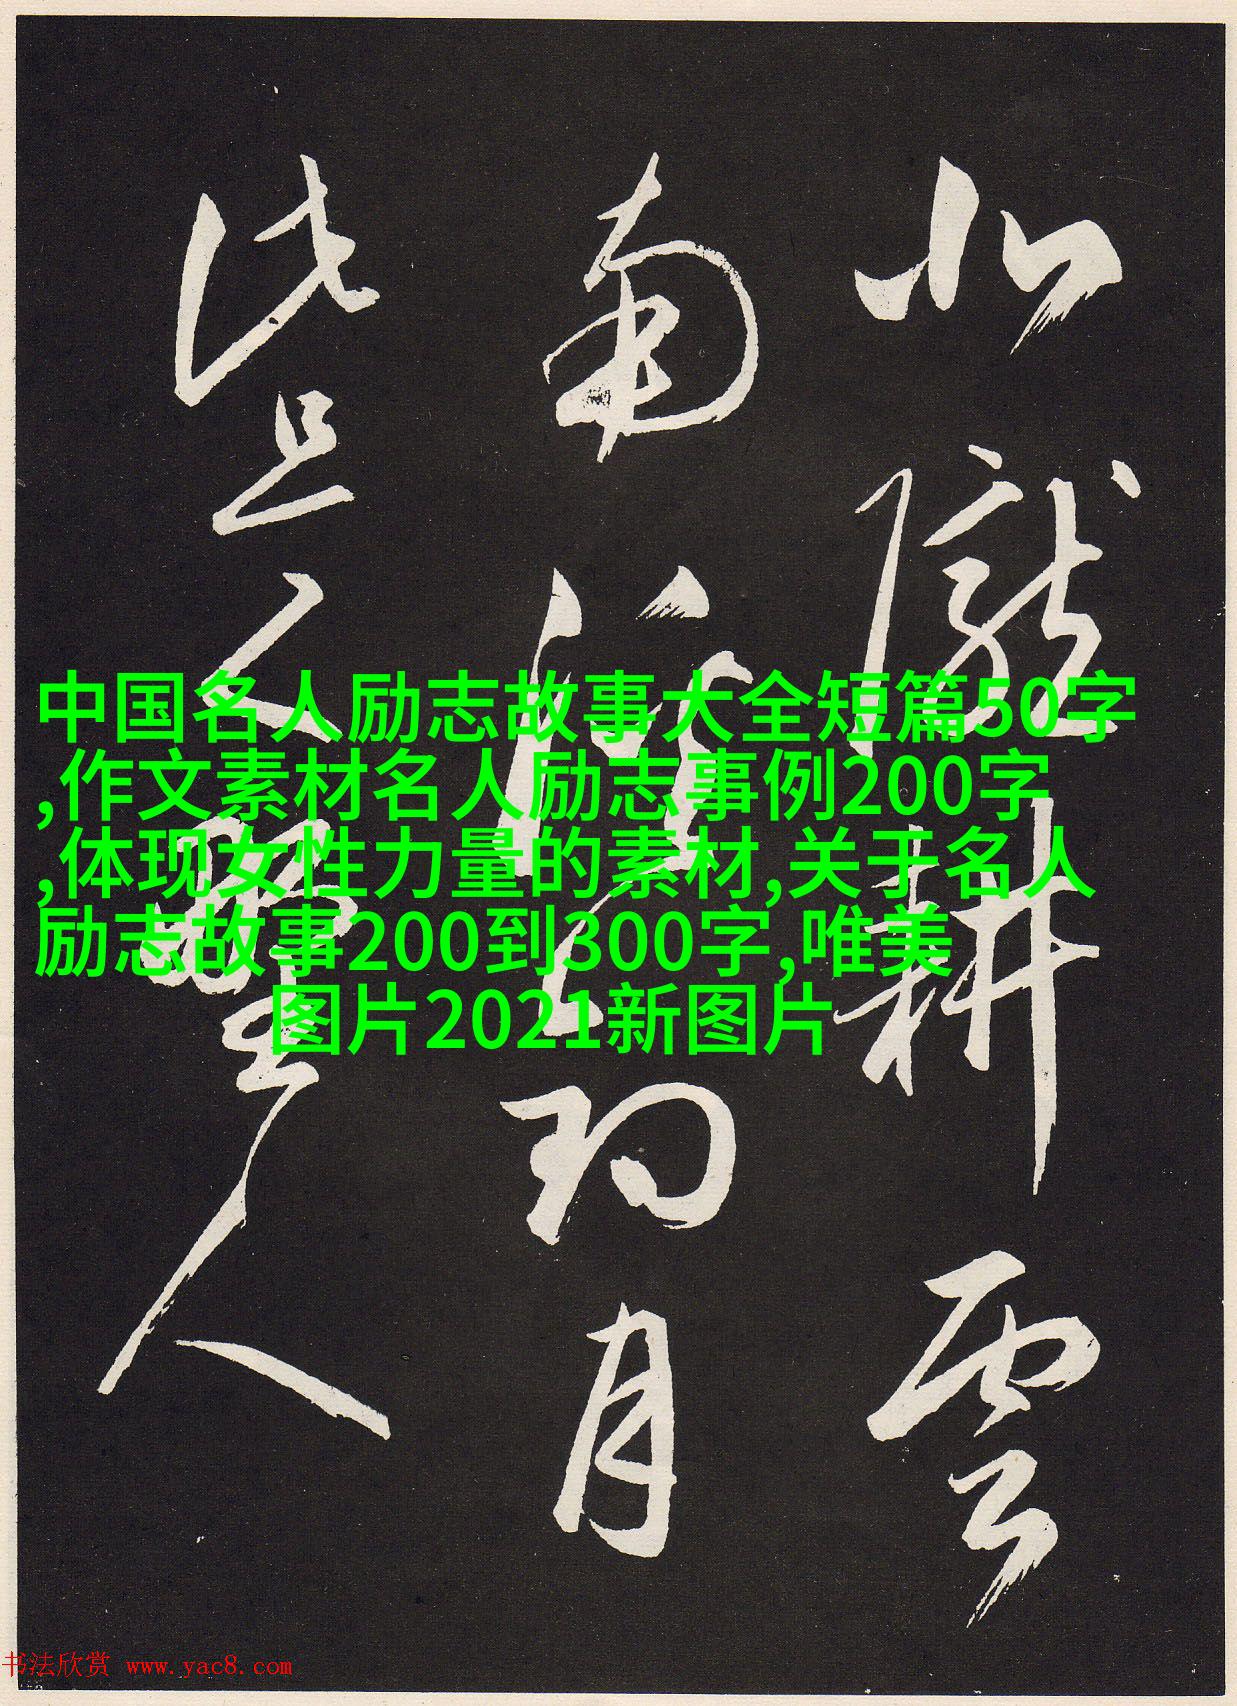 北隴耕雲
南
釣月
此且人
聖人
中国名人励志故事大全短篇50字
,作文素材名人励志事例200字
,体现女性力量的素材,关于名人
励志故事200到300字,唯美
图片2021新图片
书法欣赏 www.yac8.com